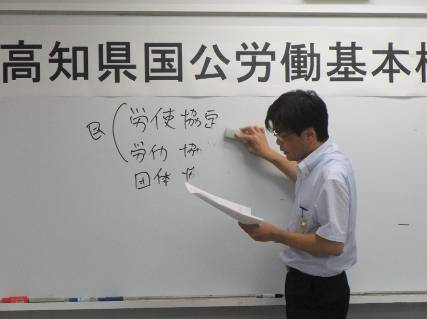 高知県国公労働基本権
労使協定
労働協
団体